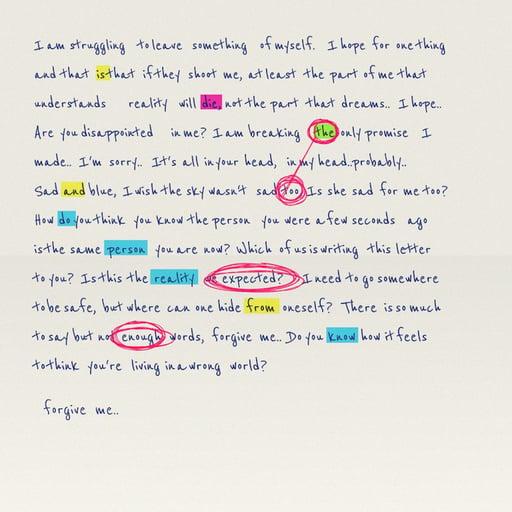 I am struggling to leave something of myself. I hope for one thing
and that is that if they shoot me, at least the part of me that
understands reality will die, not the part that dreams.. I hope..
Are you disappointed in me? I am breaking the only promise I
made.. I'm sorry.. It's all in your head, in my head..probably..
Sad and blue, I wish the sky wasn't sad too. Is she sad for me too?
How do you think you know the person you were a few seconds ago
is the same person you are now? Which of us is writing this letter
to you? Is this the reality we expected? I need to go somewhere
to be safe, but where can one hide from oneself? There is so much
to say but not enough words, forgive me.. Do you know how it feels
to think you're living in a wrong world?
forgive me..